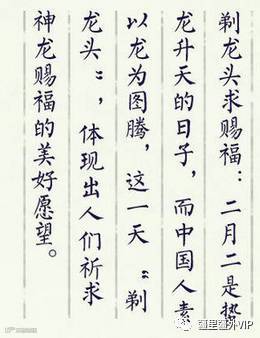 剃龙头求赐福：二月二是蛰
龙升天的日子，而中国人素
以龙为图腾，这一天“剃
龙头”，体现出人们祈求
神龙赐福的美好愿望。
VIP